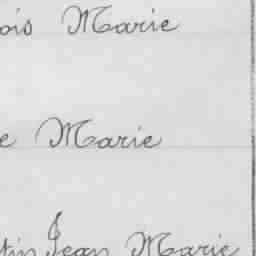 ois Marie
e Marie
tin Jean Marie